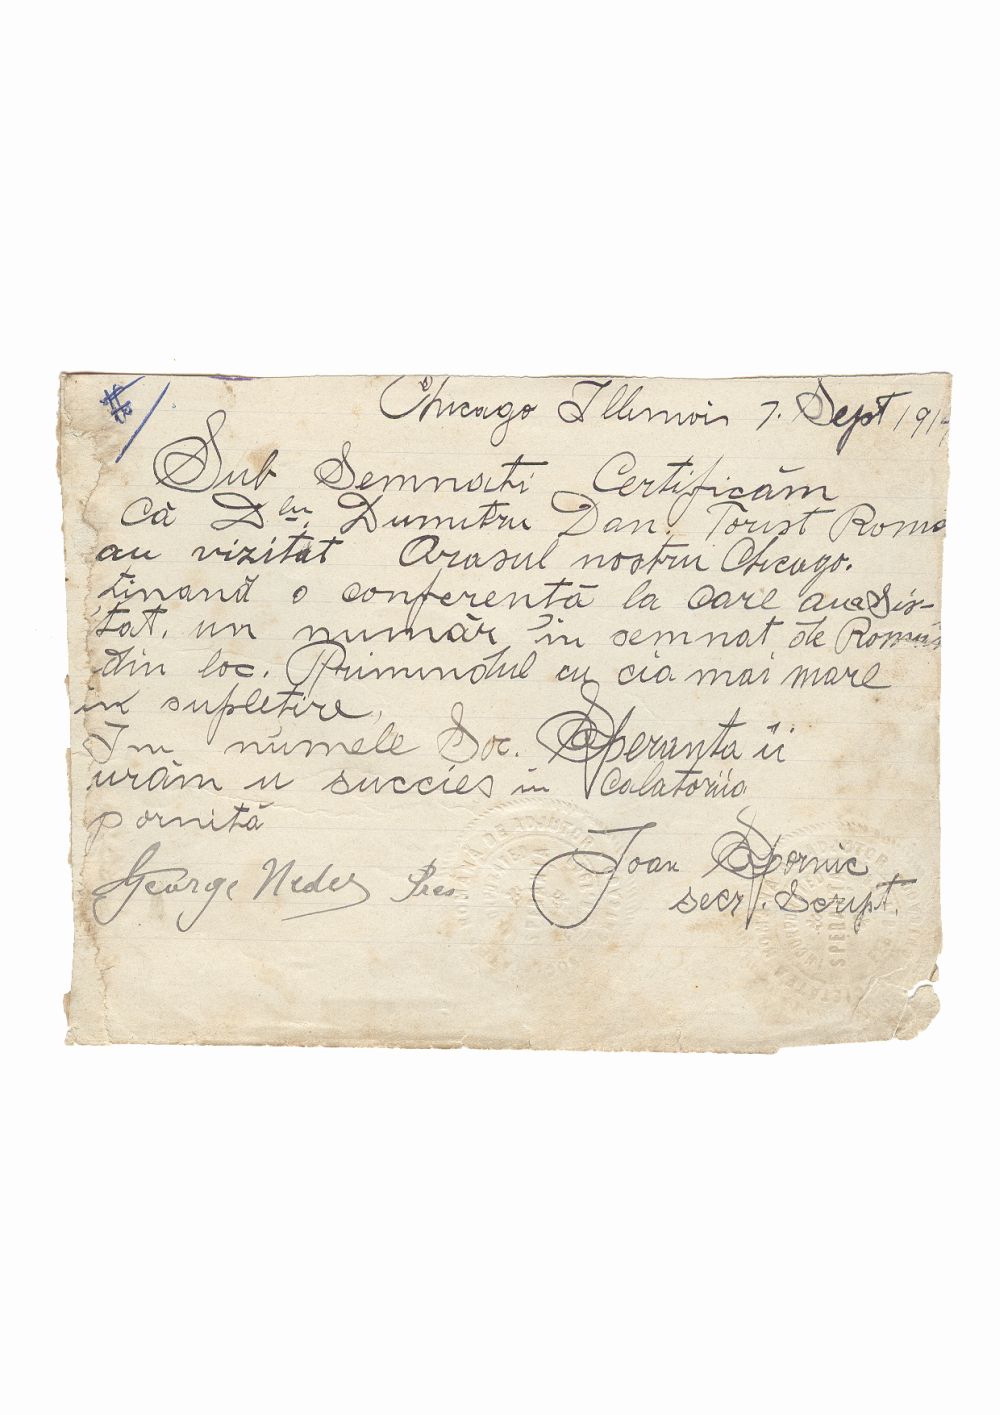 Chicago Illinois 7. Sept 191
Sub Semnati Certificăm
Că Dlu. Dumitru Dan. Torist Roma
au vizitat Orasul nostru Chicago.
tinand o conferentă la care au aSis-
tat. un număr în semnat de
din loc. Primindul cu cia mai mare
in supletire,
In numele Soc. Speranta ii
urăm u succies in Calatoriia
pornită
George Pres
Ioan
secr. Script.
SPERANTA